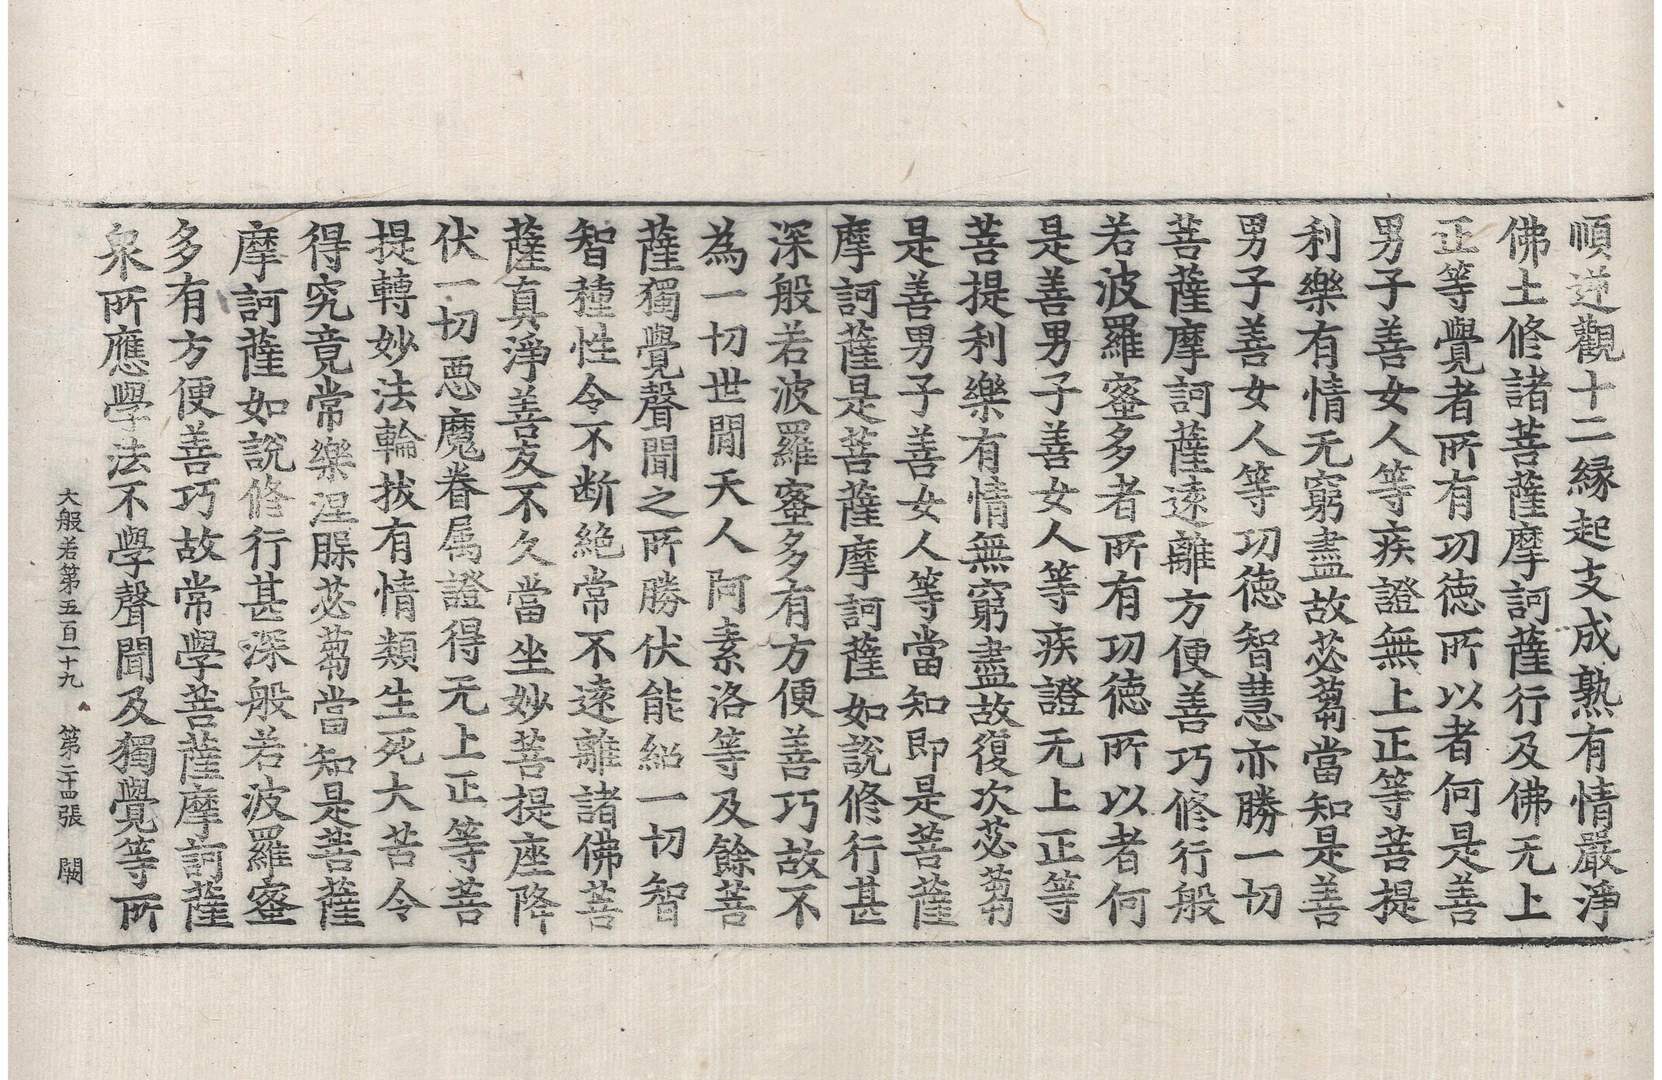 順逆觀十二縁起支成熟有情嚴淨
佛土修諸菩薩摩訶薩行及佛无上
正等覺者所有功徳所以者何是善
男子善女人等疾證無上正等菩提
利樂有情无窮盡故苾蒭當知是善
男子善女人等功徳智慧亦勝一切
菩薩摩訶薩遠離方便善巧修行般
若波羅蜜多者所有功徳所以者何
是善男子善女人等疾證无上正等
菩提利樂有情無窮盡故復次苾蒭
是善男子善女人等當知即是菩薩
摩訶薩是菩薩摩訶薩如說修行甚
深般若波羅蜜多有方便善巧故不
為一切世閒天人阿素洛等及餘菩
薩獨覺聲聞之所勝伏能紹一切智
智種性令不断絶常不遠離諸佛菩
薩真淨善友不久當坐妙菩提座降
伏一切惡魔眷属證得无上正等菩
提轉妙法輪拔有情類生死大苦令
得究竟常樂涅槃苾蒭當知是菩薩
摩訶薩如說修行甚深般若波羅蜜
多有方便善巧故常學菩薩摩訶薩
衆所應學法不學聲聞及獨覺等所
大般若第五百一十九 第二十四張 闕